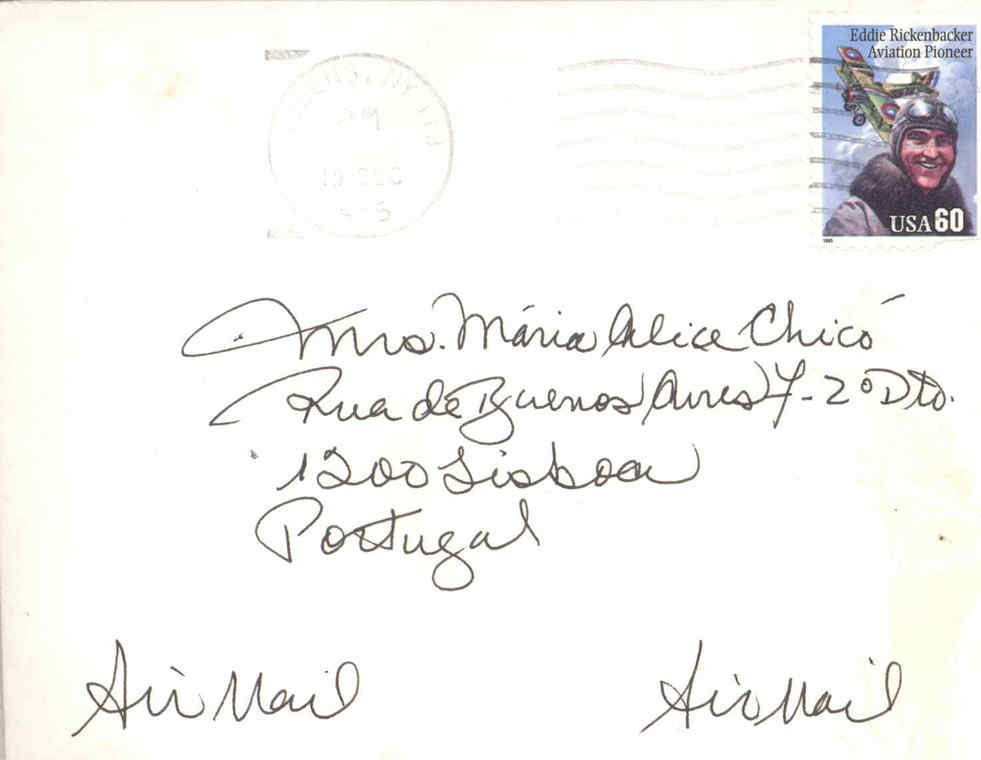 Eddie Rickenbacker
Aviation Pioneer
PM
19 DEC
USA 60
1995
Mrs. Mária Alice Chicó
Rua de Buenos Aires 7-2º Dto.
1200 Lisboa
Portugal
Air Mail
Air Mail